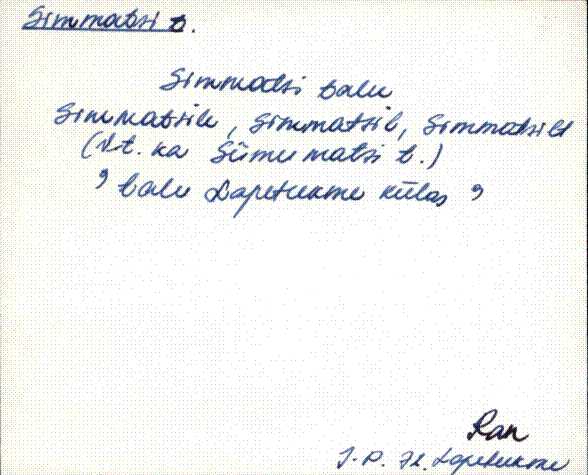 Simmatsi t.
Simmatsi talu
Simmatsile, Simmatsil, Simmatsilt
(vt. ka Siimu matsi t.)
, talu Lapetukme külas ,
Ran
J.-P. Lapetukme